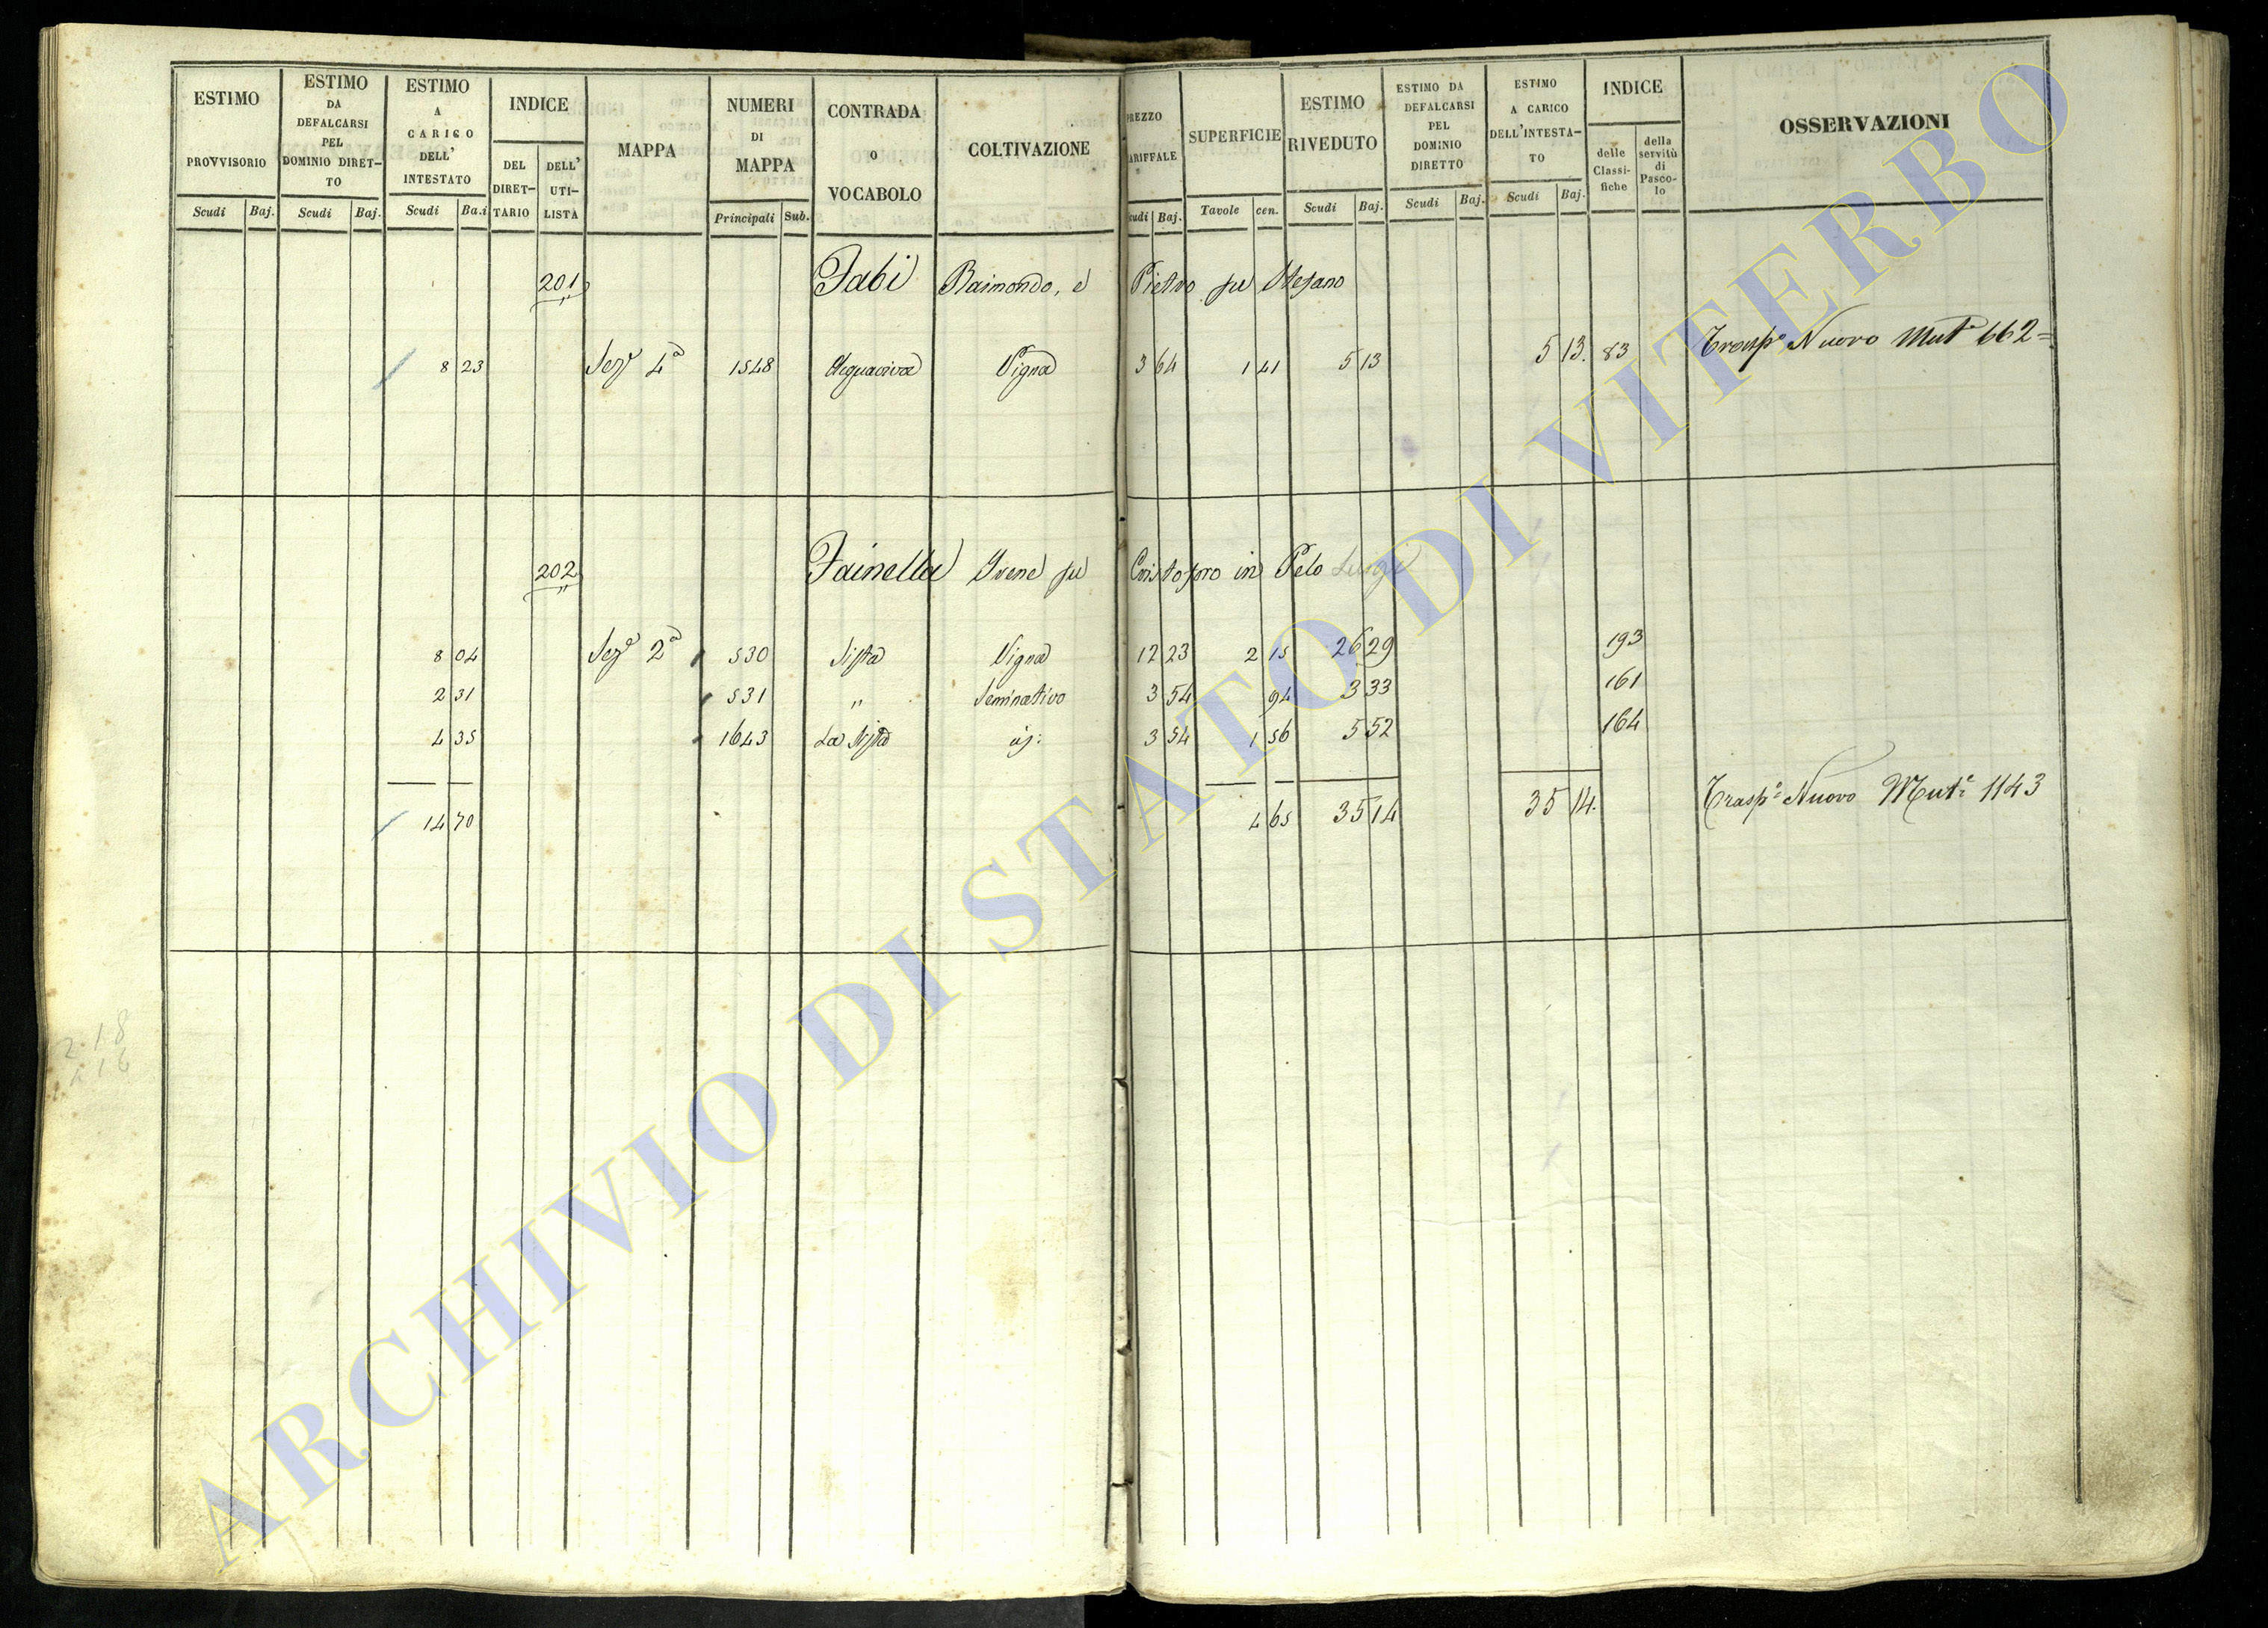 ESTIMO PROVVISORIO
ESTIMO DA DEFALCARSI PEL DOMINIO DIRET-TO
ESTIMO A CARICO DELL' INTESTATO
INDICE
DEL DIRET-TARIO
DELL' UTI-LISTA
MAPPA
NUMERI DI MAPPA
CONTRADA O VOCABOLO
COLTIVAZIONE
PREZZO TARIFFALE
SUPERFICIE
ESTIMO RIVEDUTO
ESTIMO DA DEFALCARSI PEL DOMINIO DIRETTO
ESTIMO A CARICO DELL'INTESTA-TO
INDICE
delle Classi-fiche
della servitù di Pasco-lo
OSSERVAZIONI
Scudi Baj. Scudi Baj. Scudi Ba.i Principali Sub. Scudi Baj. Tavole cen. Scudi Baj. Scudi Baj. Scudi Baj.
201 Fabi Raimondo, e Pietro fu Stefano
8 23 Sez.e 4a 1548 Acquaviva Vigna 3 64 1 41 5 13 5 13. 83 Trasp.o Nuovo Mut.a 662=
202 Fainella Irene fu Cristoforo in Pelo Luigi
8 04 Sez.e 2a 530 Sista Vigna 12 23 2 15 26 29 193
2 31 531 " Seminativo 3 54 94 3 33 161
4 35 1643 La Sista 3 54 1 56 5 52 164
14 70 4 65 35 14 35 14. Trasp.o Nuovo Mut.e 1143
218
16
ARCHIVIO DI STATO DI VITERBO